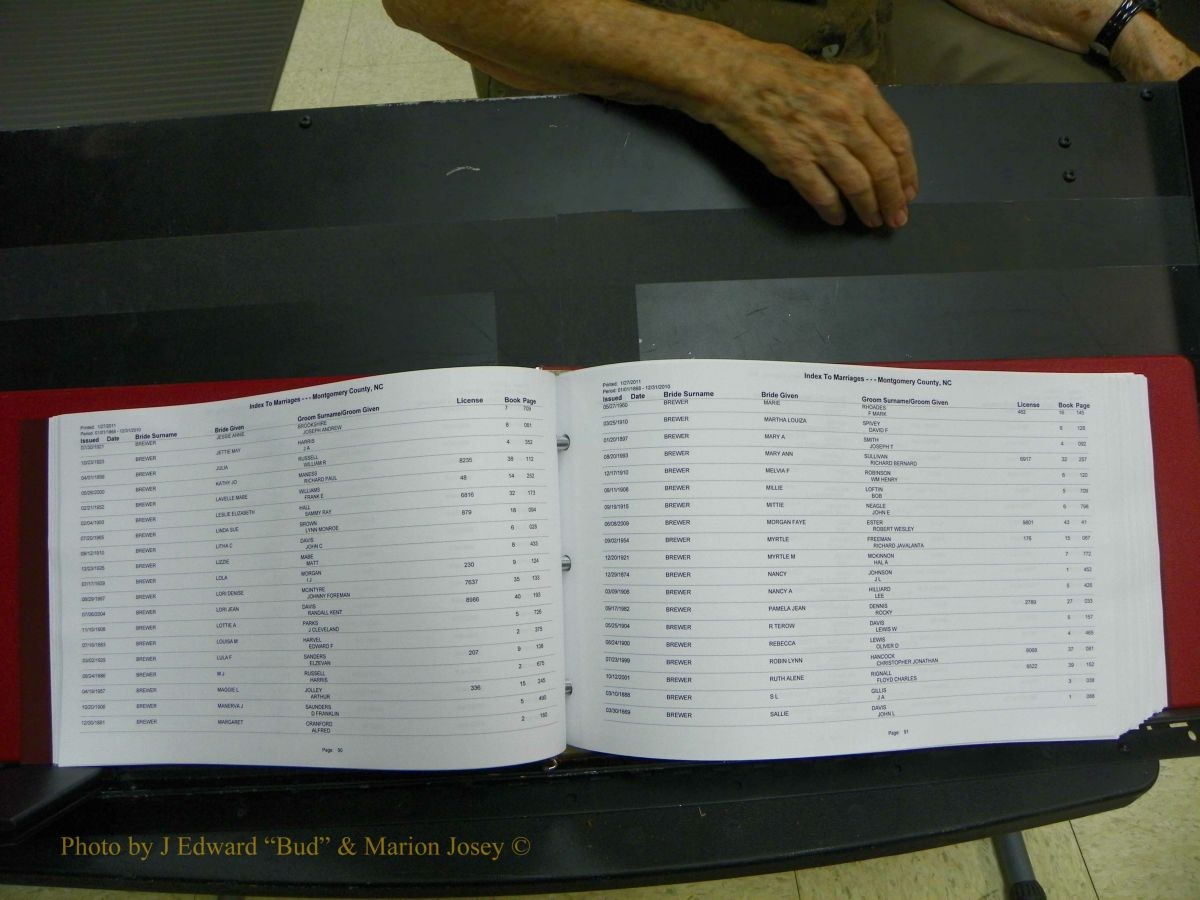 Printed: 1/27/2011
Period: 01/01/1868 - 12/31/2010
Index To Marriages - - - Montgomery County, NC
Issued Date Bride Surname Bride Given Groom Surname/Groom Given License Book Page
07/30/1921 BREWER JESSIE ANNE BROOKSHIRE 7 709
JOSEPH ANDREW
10/23/1923 BREWER JETTIE MAY HARRIS 8 061
J A
04/01/1898 BREWER JULIA RUSSELL 4 352
WILLIAM R
BREWER KATHY JO MANESS 8235 38 112
RICHARD PAUL
02/21/1952 BREWER LAVELLE MABE WILLIAMS 48 14 252
FRANK E
BREWER LESLIE ELIZABETH HALL 6816 32 173
SAMMY RAY
07/20/1965 BREWER LINDA SUE BROWN 879 18 094
LYNN MONROE
09/12/1910 BREWER LITHA C DAVIS 6 028
JOHN C
12/23/1925 BREWER LIZZIE MABE 8 433
MATT
BREWER LOLA MORGAN 230 9 124
I J
BREWER LORI DENISE MCINTYRE 7637 35 133
JOHNNY FOREMAN
07/06/2004 BREWER LORI JEAN DAVIS 8986 40 193
RANDALL KENT
11/10/1908 BREWER LOTTIE A PARKS 5 726
J CLEVELAND
BREWER LOUISA M HARVEL 2 375
EDWARD F
BREWER LULA F SANDERS 207 9 138
ELZEVAN
BREWER W J RUSSELL 2 675
HARRIS
04/19/1957 BREWER MAGGIE L JOLLEY 336 15 245
ARTHUR
10/20/1906 BREWER MANERVA J SAUNDERS 5 490
D FRANKLIN
12/30/1881 BREWER MARGARET CRANFORD 2 180
ALFRED
Page: 90
Printed: 1/27/2011
Period: 01/01/1868 - 12/31/2010
Index To Marriages - - - Montgomery County, NC
Issued Date Bride Surname Bride Given Groom Surname/Groom Given License Book Page
05/27/1960 BREWER MARIE RHOADES 452 16 145
F MARK
03/25/1910 BREWER MARTHA LOUIZA SPIVEY 6 126
DAVID F
01/20/1897 BREWER MARY A SMITH 4 092
JOSEPH T
08/20/1993 BREWER MARY ANN SULLIVAN 6917 32 257
RICHARD BERNARD
12/17/1910 BREWER MELVIA F ROBINSON 6 120
WM HENRY
09/11/1908 BREWER MILLIE LOFTIN 5 709
BOB
09/19/1915 BREWER MITTIE NEAGLE 6 796
JOHN E
06/08/2009 BREWER MORGAN FAYE ESTER 9801 43 41
ROBERT WESLEY
09/02/1954 BREWER MYRTLE FREEMAN 176 15 067
RICHARD JAVALANTA
12/20/1921 BREWER MYRTLE M MCKINNON 7 772
HAL A
12/29/1874 BREWER NANCY JOHNSON 1 452
J L
03/09/1906 BREWER NANCY A HILLIARD 5 426
LEE
09/17/1982 BREWER PAMELA JEAN DENNIS 2789 27 033
ROCKY
05/25/1904 BREWER R TEROW DAVIS 5 157
LEWIS W
06/24/1900 BREWER REBECCA LEWIS 4 469
OLIVER D
07/23/1999 BREWER ROBIN LYNN HANCOCK 8068 37 081
CHRISTOPHER JONATHAN
10/12/2001 BREWER RUTH ALENE RIGNALL 8522 39 162
FLOYD CHARLES
03/10/1888 BREWER S L GILLIS 3 038
J A
03/30/1869 BREWER SALLIE DAVIS 1 088
JOHN L
Page: 91
Photo by J Edward “Bud” & Marion Josey ©